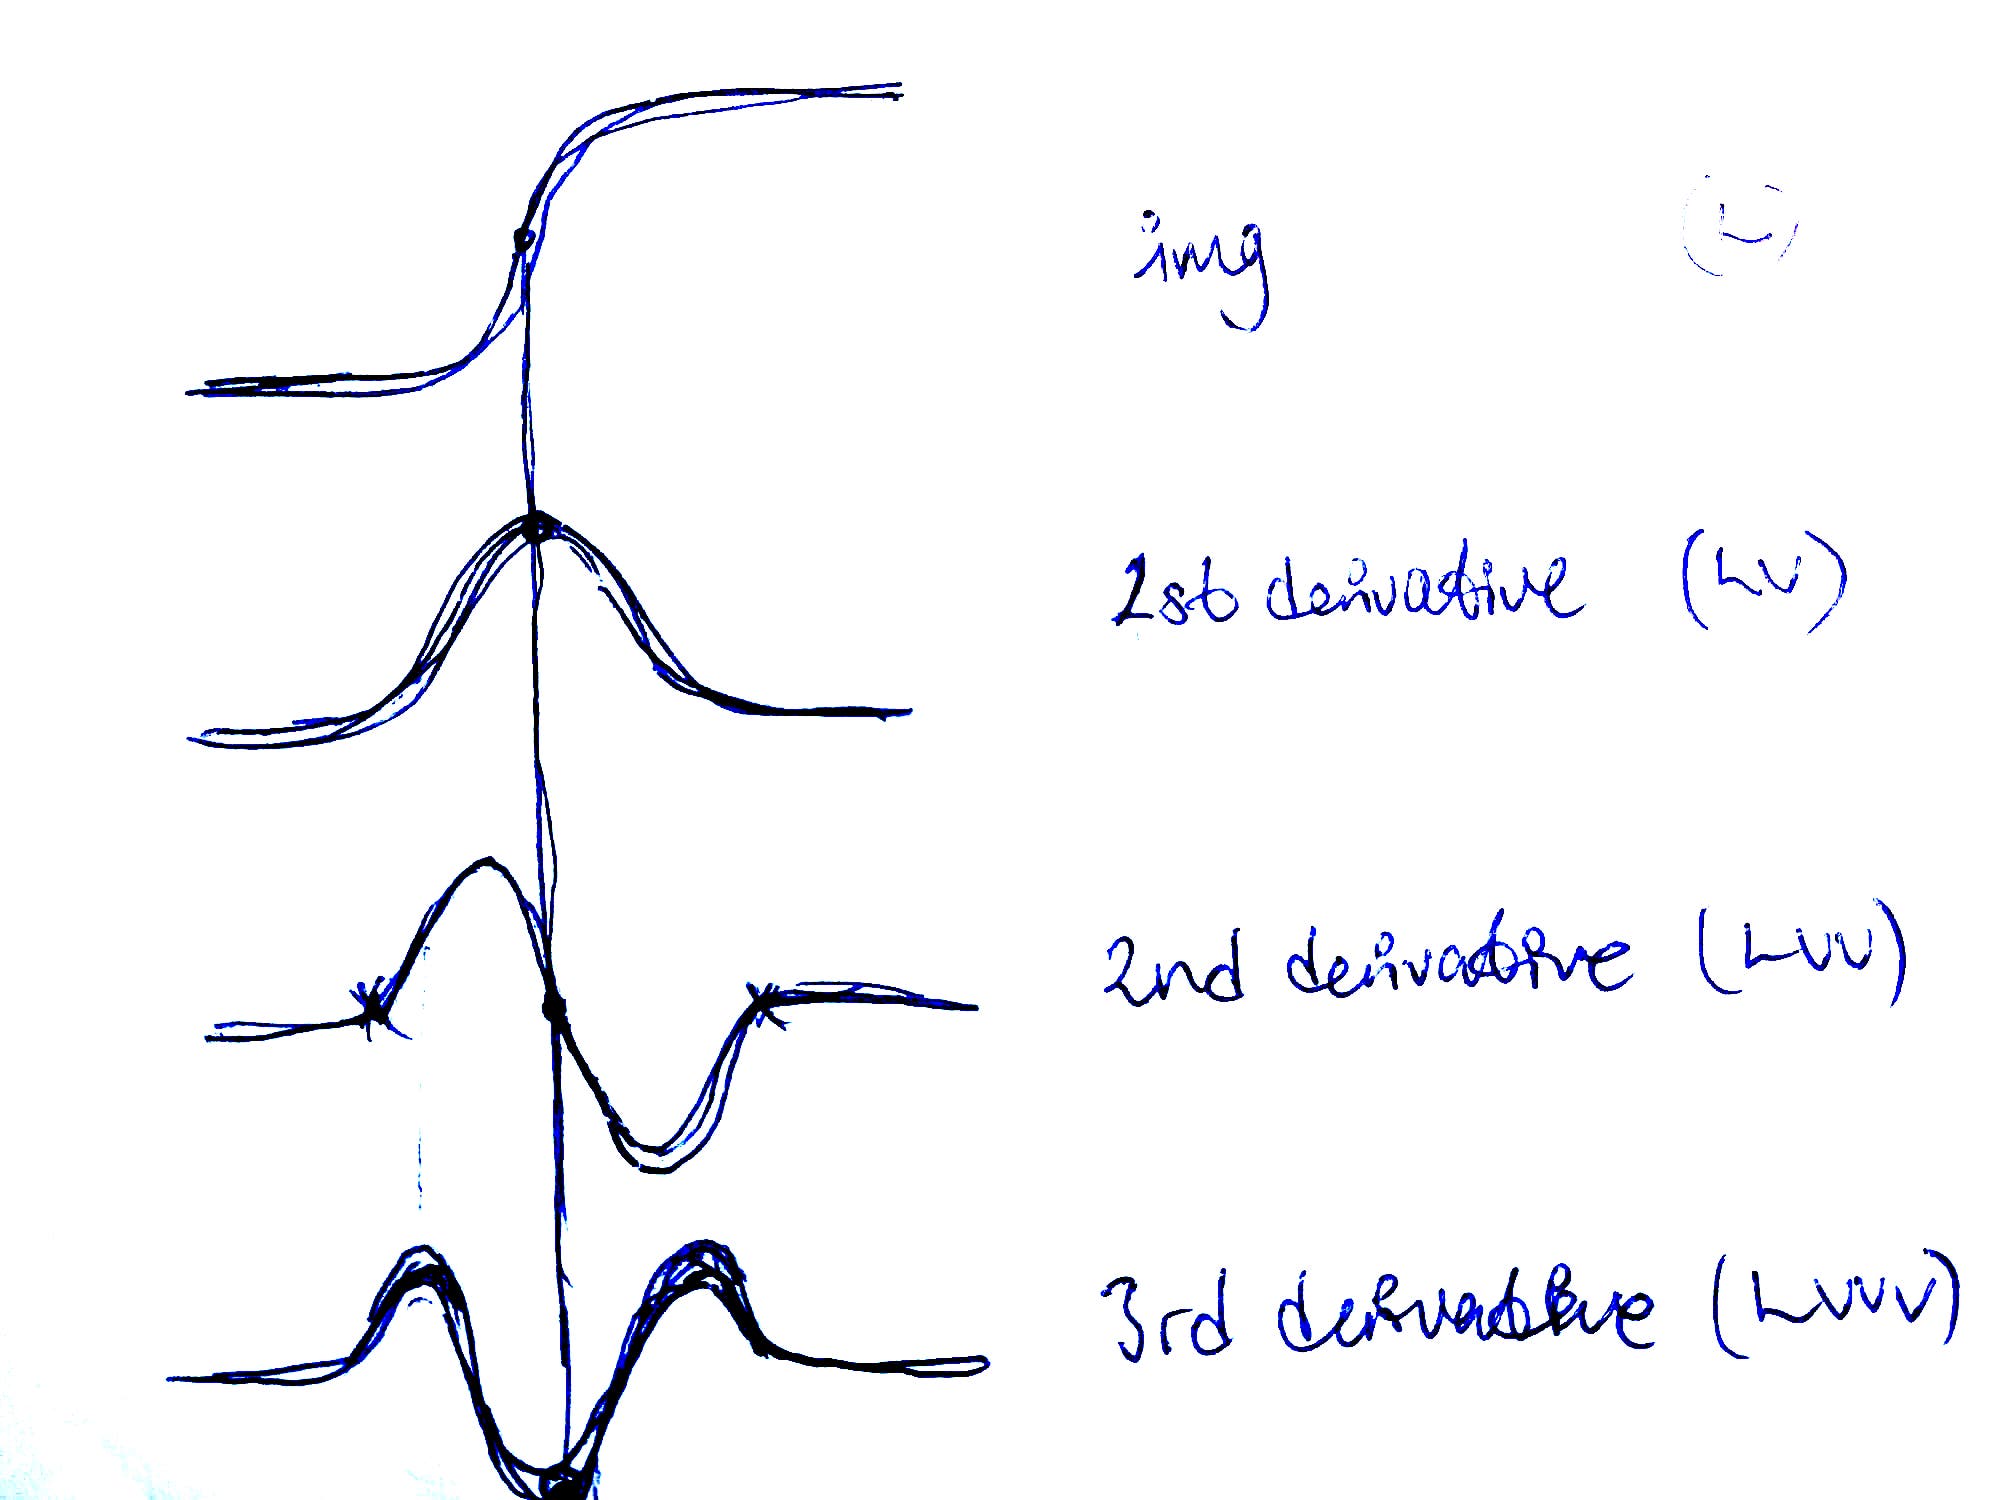 img (L)
1st derivative (LV)
2nd derivative (LVV)
3rd derivative (LVVV)